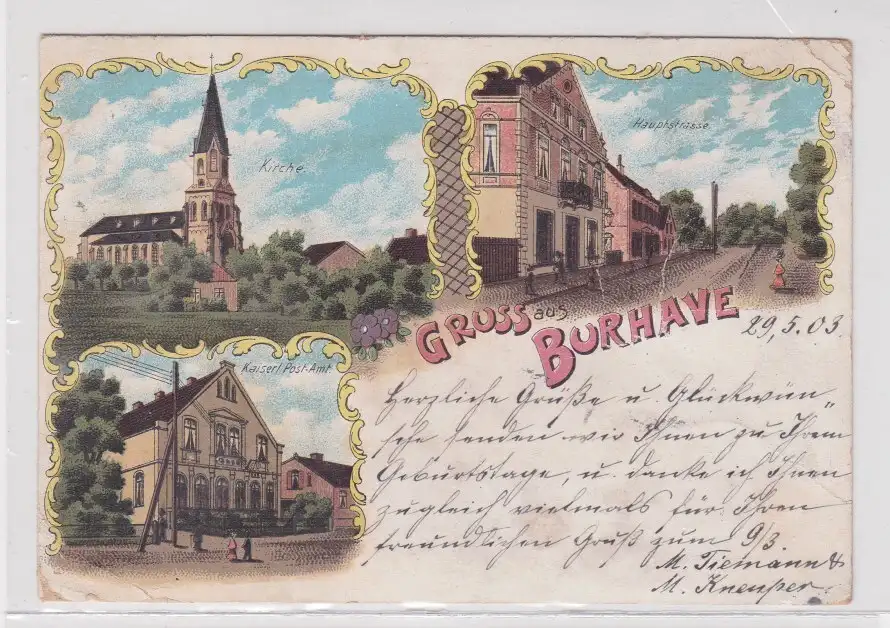 Kirche
Hauptstrasse
Gruss aus
Burhave
Kaiserl. Post-Amt
29.5.03
Herzliche Grüße u. Glückwün„
sche senden wir Ihnen zu Ihrem
Geburtstage, u. danke ich Ihnen
zugleich vielmals für Ihren
freundlichen Gruß zum 9/3.
M. Tiemann &
M. Kneuper.